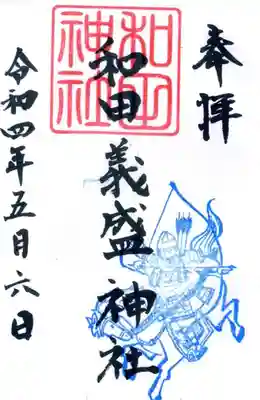 奉拝
和田義盛神社
和田神社
令和四年五月六日